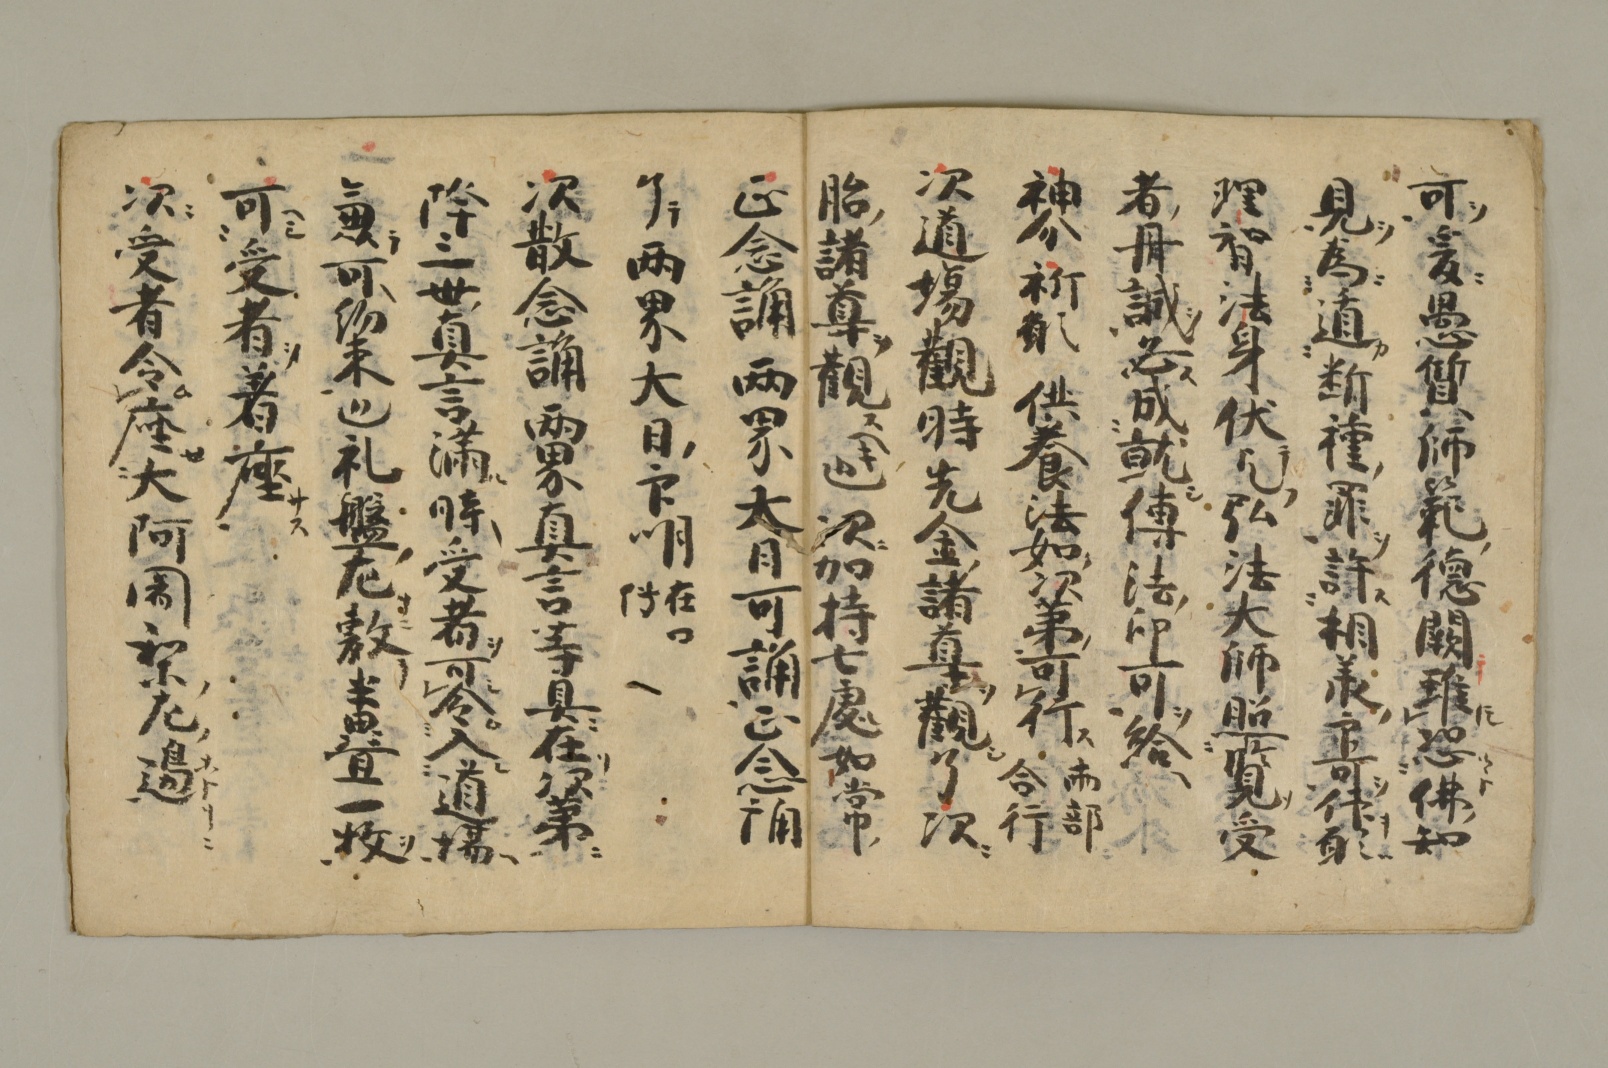 可爰愚質師範德闕雖恐佛知
見為道断種罪許相羕
理智法身伏乞弘法大師照覧受
者丹誠必成就傳法印可給
神分祈願 供養法如次第可行 両部合行
次道場觀時先金諸尊觀了次
胎諸尊觀 次加持七處如常
正念誦 兩界大日可誦正念誦
了 兩界大日印明 在口傳
次散念誦 兩界真言等具在次第
降三世真言満時受者可令入道場
兼可約束 礼盤左敷半畳一枚
可受者著座
次受者令座大阿闍梨左邊